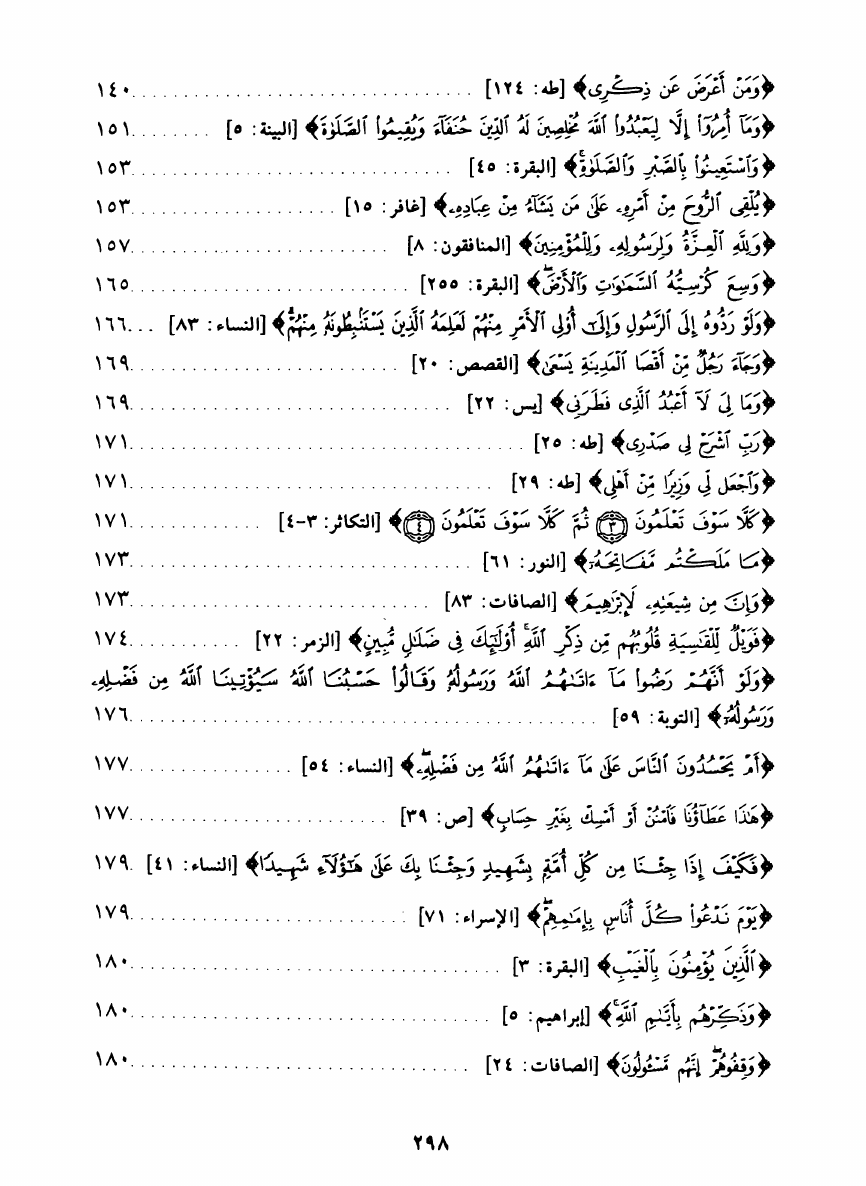 ﴿وَمَنْ أَعْرَضَ عَن ذِكْرِى﴾ [طه: ١٢٤] ................................ ١٤٠
﴿وَمَآ أُمِرُوٓا۟ إِلَّا لِيَعْبُدُوا۟ ٱللَّهَ مُخْلِصِينَ لَهُ ٱلدِّينَ حُنَفَآءَ وَيُقِيمُوا۟ ٱلصَّلَوٰةَ﴾ [البينة: ٥] ........ ١٥١
﴿وَٱسْتَعِينُوا۟ بِٱلصَّبْرِ وَٱلصَّلَوٰةِ ۚ﴾ [البقرة: ٤٥] ................................ ١٥٣
﴿يُلْقِى ٱلرُّوحَ مِنْ أَمْرِهِۦ عَلَىٰ مَن يَشَآءُ مِنْ عِبَادِهِۦ﴾ [غافر: ١٥] .................... ١٥٣
﴿وَلِلَّهِ ٱلْعِزَّةُ وَلِرَسُولِهِۦ وَلِلْمُؤْمِنِينَ﴾ [المنافقون: ٨] .......................... ١٥٧
﴿وَسِعَ كُرْسِيُّهُ ٱلسَّمَٰوَٰتِ وَٱلْأَرْضَ ۖ﴾ [البقرة: ٢٥٥] ........................... ١٦٥
﴿وَلَوْ رَدُّوهُ إِلَى ٱلرَّسُولِ وَإِلَىٰٓ أُو۟لِى ٱلْأَمْرِ مِنْهُمْ لَعَلِمَهُ ٱلَّذِينَ يَسْتَنۢبِطُونَهُۥ مِنْهُمْ ۗ﴾ [النساء: ٨٣] ... ١٦٦
﴿وَجَآءَ رَجُلٌ مِّنْ أَقْصَا ٱلْمَدِينَةِ يَسْعَىٰ﴾ [القصص: ٢٠] .......................... ١٦٩
﴿وَمَا لِىَ لَآ أَعْبُدُ ٱلَّذِى فَطَرَنِى﴾ [يس: ٢٢] ............................... ١٦٩
﴿رَبِّ ٱشْرَحْ لِى صَدْرِى﴾ [طه: ٢٥] ...................................... ١٧١
﴿وَٱجْعَل لِّى وَزِيرًا مِّنْ أَهْلِى﴾ [طه: ٢٩] ................................... ١٧١
﴿كَلَّا سَوْفَ تَعْلَمُونَ ٣ ثُمَّ كَلَّا سَوْفَ تَعْلَمُونَ ٤﴾ [التكاثر: ٣-٤] ............. ١٧١
﴿مَا مَلَكْتُم مَّفَاتِحَهُۥٓ﴾ [النور: ٦١] ................................. ١٧٣
﴿وَإِنَّ مِن شِيعَتِهِۦ لَإِبْرَٰهِيمَ﴾ [الصافات: ٨٣] ............................. ١٧٣
﴿فَوَيْلٌ لِّلْقَٰسِيَةِ قُلُوبُهُم مِّن ذِكْرِ ٱللَّهِ ۚ أُو۟لَٰٓئِكَ فِى ضَلَٰلٍ مُّبِينٍ﴾ [الزمر: ٢٢] ........... ١٧٤
﴿وَلَوْ أَنَّهُمْ رَضُوا۟ مَآ ءَاتَىٰهُمُ ٱللَّهُ وَرَسُولُهُۥ وَقَالُوا۟ حَسْبُنَا ٱللَّهُ سَيُؤْتِينَا ٱللَّهُ مِن فَضْلِهِۦ
وَرَسُولُهُۥٓ﴾ [التوبة: ٥٩] ............................................. ١٧٦
﴿أَمْ يَحْسُدُونَ ٱلنَّاسَ عَلَىٰ مَآ ءَاتَىٰهُمُ ٱللَّهُ مِن فَضْلِهِۦ ۖ﴾ [النساء: ٥٤] ................ ١٧٧
﴿هَٰذَا عَطَآؤُنَا فَٱمْنُنْ أَوْ أَمْسِكْ بِغَيْرِ حِسَابٍ﴾ [ص: ٣٩] ......................... ١٧٧
﴿فَكَيْفَ إِذَا جِئْنَا مِن كُلِّ أُمَّةٍۭ بِشَهِيدٍ وَجِئْنَا بِكَ عَلَىٰ هَٰٓؤُلَآءِ شَهِيدًا﴾ [النساء: ٤١] . ١٧٩
﴿يَوْمَ نَدْعُوا۟ كُلَّ أُنَاسٍۭ بِإِمَٰمِهِمْ ۖ﴾ [الإسراء: ٧١] ........................... ١٧٩
﴿ٱلَّذِينَ يُؤْمِنُونَ بِٱلْغَيْبِ﴾ [البقرة: ٣] .................................... ١٨٠
﴿وَذَكِّرْهُم بِأَيَّىٰمِ ٱللَّهِ ۚ﴾ [إبراهيم: ٥] ................................... ١٨٠
﴿وَقِفُوهُمْ ۖ إِنَّهُم مَّسْـُٔولُونَ﴾ [الصافات: ٢٤] ................................. ١٨٠
٢٩٨